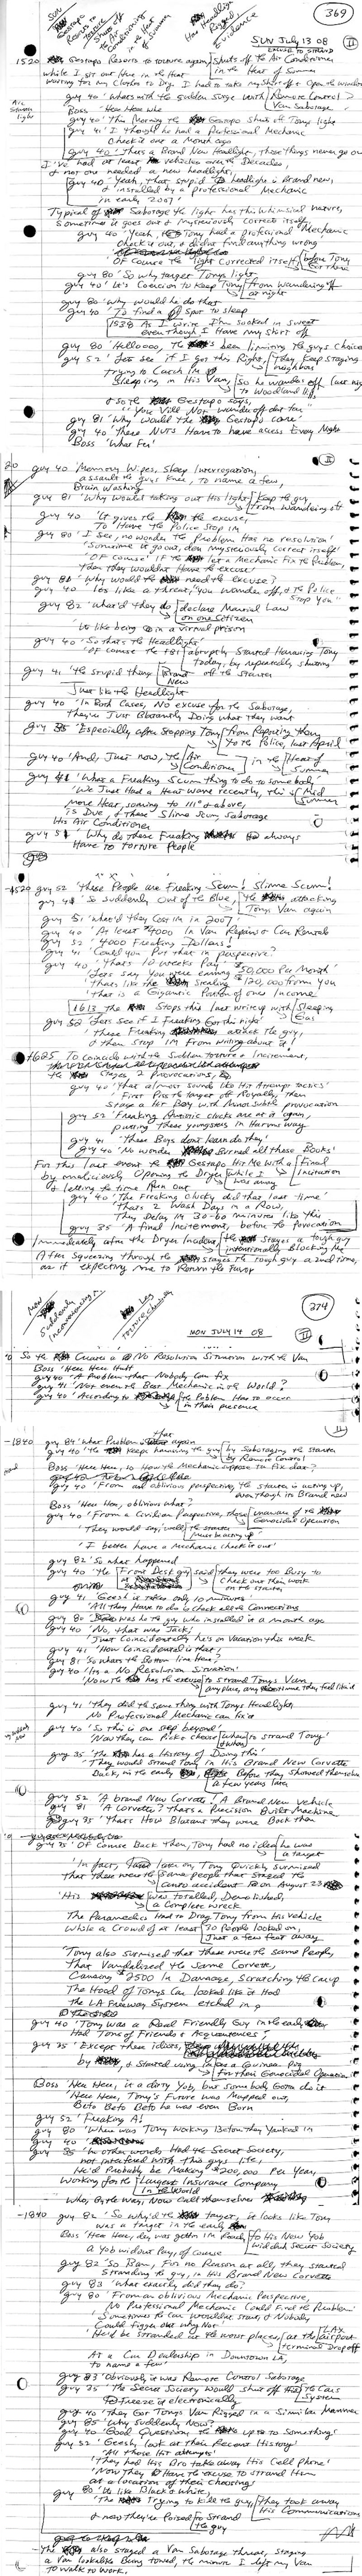 369
SUN JULY 13 08
II
1520 Gestapo Resorts to torture again, Shuts off the Air Conditioner
while I sit out Here in the Heat
in the Heat of Summer
waiting for my Clothes to Dry. I had to take my Shirt off & Open the window
guy 40 'What's with the sudden surge with Remote Control
Van Sabotage
Boss 'Here Here
guy 40 'This Morning the Gestapo shut off Tonys light
guy 41 'I thought he had a Professional Mechanic
Check it out a Month ago
guy 40 'Its a Brand New Headlight, those things never go out
I've had at least vehicles over the Decades,
& not one needed a new headlight
guy 40 'Yeah, that stupid Headlight is Brand new,
& installed by a professional Mechanic
in early 2007'
Typical of Sabotage the light has this whimsical nature,
Sometimes it goes out & Mysteriously corrects itself
guy 40 'Yeah, Tony had a professional Mechanic
check it out & didnt find anything wrong
'Of course the light Corrected itself before Tony
Got there
guy 80 'So why target Tonys light
guy 40 'It's Coercion to keep Tony from wandering off
at night
guy 80 'Why would he do that
guy 40 'To find a Spot to sleep
1538 As I write I'm soaked in sweat
even though I Have my shirt off
guy 80 'Helloooo, the been limiting the guys Choices
guy 52 'Lets see if I got this Right, they keep staging
neighbors
trying to Catch im
Sleeping in His Van, So he wanders off last night
to Woodland Hills
& so the Gestapo says,
'You Vill Not wander off dot far'
guy 81 'Why would the Gestapo care'
guy 40 'These NUTS Have to have access Every Night
Boss 'What Fer'
II
guy 40 'Memory Wipes, Sleep Interrogation,
assault the guys knee, to name a few,
Brain Washing
guy 81 'Why would taking out His light Keep the guy
from Wandering off
guy 40 'It gives the the excuse,
To Have the Police Stop im
guy 80 'I see, no wonder the Problem Has no resolution'
'Sometimes it goes out, den mysteriously correct itself'
'OF course' If the let a Mechanic fix the Problem,
then they wouldnt Have the excuse'
guy 81 'Why would the need the excuse?
guy 40 'Its like a threat, you wander off, & the Police
Stop you"
guy 82 'what'd they do declare Martial Law
on one Citizen
'Its like being in a virtual prison
guy 40 'So thats the Headlights'
'Of course the FBI abruptly Started Harassing Tony
today, by repeatedly shutting
off the Starter
guy 41 'the stupid thing Brand
New
Just like the Headlight
guy 40 'In Both Cases, No excuse for the Sabotage,
they're Just Blatantly Doing what they want
guy 35 'Especially after Stopping Tony from Reporting them
to the Police, last April
guy 40 'And, Just now, the Air
Conditioner in the Heat of
Summer
guy 41 'What a Freaking Scum thing to do to some body'
'We Just Had a Heat wave recently, this is Mid
Summer
more Heat, soaring to 111° & above,
is Due, & these Slime Scum Sabotage
His Air Conditioner
guy 51 'Why do these Freaking always
Have to torture People
guy 52 'These People are Freaking Scum! Slime Scum!
guy 41 'So suddenly out of the Blue, the attacking
Tonys Van again
guy 51 'what'd they Cost im in 2007'
guy 40 'At least $4000 in Van Repairs & Car Rentals
guy 52 '4000 Freaking Dollars!'
guy 41 'Could you Put that in perspective?
guy 40 'thats 10 weeks Pay'
'Lets say you were earning $50,000 Per Month'
'Thats like the stealing $120,000 from you
'That is a Gigantic Portion of ones Income
1613 the Stops this last write up with Sleeping
Gas
guy 52 'Lets see if I Freaking Got this Right'
'These Freaking attack the guy,
& then Stop Im from writing about it'
1625 To Coincide with the Sudden torture & Increment,
the Stages Provocations
guy 40 'that almost sounds like Hit Attempt tactics'
First Piss the target off Royally, then
Stage a Hit Boy with Much Subtle Provocation
guy 52 'Freaking Autistic Clucks are at it again,
putting these youngsters in Harms way
guy 41 'These Boys dont learn do they'
guy 40 'No wonder Burned all these Books!
For this last event the Gestapo Hit Me with a Final
Incitation
by maliciously Opening the Dryer while I
was away
& letting the time Run out
guy 40 'The Freaking Clucky did that last time'
'thats 2 Wash Days in a Row,
They Delay im 30-60 minutes like this
guy 35 'A final Incitement, before the provocation
Immediately after the Dryer Incident, the Stages a tough guy
intentionally Blocking the
After Squeezing through the Stages the tough guy a 2nd time,
as if expecting me to Return the favor
274
MON JULY 14 08
II
So the Creates a No Resolution Situation with the Van
Boss 'Here Here Hutt
guy 40 'A problem that Nobody Can fix
guy 41 'Not even the Best Mechanic in the World?
guy 40 'According to the Problem Has to occur
in their presence
1840 guy 84 'What Problem is that again
guy 40 'the keeps harassing the guy by Sabotaging the starter
by Remote Control
Boss 'Here Here, so How the Mechanic suppose to fix dat?
guy 40 'From an oblivious perspective, the starter is acting up,
even though its Brand new
Boss 'Here Here, oblivious what?
guy 40 'From a Civilian Perspective, those unaware of the
Genocidal Operation
'They would say, 'well the starter
must be acting up'
'I better have a Mechanic check it out'
guy 82 'So what happened
guy 40 'the Front Desk guy said they were too busy to
Check out their work
on the starter
guy 41 'Geesh it takes only 10 minutes'
'All they Have to do is check all the Connections
guy 80 'Was he the guy who installed it a month ago
guy 40 'No, that was Jack,'
'Just Coincidentally he's on Vacation this week
guy 41 'How Coincidental is that'
guy 81 'So whats the Bottom line here?
guy 40 'Its a No Resolution Situation'
'Now the has the excuse to strand Tonys Van,
any place, any time, they feel like it
guy 41 'they did the same thing with Tonys Headlights
No Professional Mechanic can fix it
guy 40 'So this is one step beyond'
'Now they can Pick & choose when
& where to strand Tony'
guy 35 'the has a History of Doing this'
'They would Strand Tony in His Brand New Corvette
Back, in the early Before they Showed themselves
a few years later
guy 52 'A brand New Corvette, A Brand New Vehicle
guy 81 'A Corvette? Thats a Precision Built Machine
guy 35 'thats How Blatant they were Back then
guy 35 'Of Course Back Then, Tony had no idea he was
a target
'In fact, later on, Tony Quickly surmised
that these were the Same people that Staged the
auto accident on August 23
'His was totalled, Demolished,
a Complete wreck
The Paramedics Had to Drag Tony from His Vehicle
While a Crowd of at least 70 People looked on,
Just a few feet away
'Tony also surmised that these were the same People,
that Vandalized the Same Corvette,
Causing $2500 In Damage, Scratching the car up
The Hood of Tonys Car looked like it Had
the LA Freeway System etched in
guy 40 'Tony was a Real Friendly Guy in the early
Had Tons of Friends & Acquaintences'
guy 35 'Except these idiots,
by & Started using im as a Guinea pig
for their Genocidal Operation
Boss 'Here Here, is a dirty Yob, but somebody Gotta do it
'Here Here, Tony's Future was Mapped out,
Befo Befo Befo he was even Born
guy 52 'Freaking A!
guy 80 'When was Tony working Before they Yanked im
guy 35 'In other words, Had the Secret Society,
not interfered with this guys life,
He'd Probably be Making $200,000 Per Year,
Working for the Largest Insurance Company
In the World
Who, By the way, Now Call themselves
1840 guy 82 'So why'd the target, it looks like Tony
was a target in the early
Boss 'Here Here, dey was gettin im ready fo His New Yob
wid duh Secret Society
A Yob widout Pay, of course
guy 82 'So Bam, For No Reason at all, they started
Stranding the guy, in this Brand New Corvette
guy 83 'What exactly did they do?
guy 80 'From an oblivious Mechanic Perspective,
No Professional Mechanic Could Find the Problem'
'Sometimes the Car wouldnt start, & Nobody
Could figger out why Not'
'He'd be stranded at the worst places, at the LAX
airport
terminals Drop off
At a Car Dealership in Downtown LA,
to name a few
guy 83 'Obviously it was Remote Control Sabotage
guy 35 'The Secret Society would shut off the Cars
System
& Freeze it electronically
guy 40 'They Got Tonys Van Rigged in a Similar Manner
guy 85 'Why suddenly Now?
guy 40 'Good Question, the up to Something'
guy 52 'Geesh, look at their Recent History'
'All those Hit attempts'
'They had His Bro take away His Cell phone'
'Now they Have the excuse to strand them
at a location of their choosing'
guy 80 'Its like Black & white,
'The Trying to kill the guy, they took away
His Communications
& now they're Poised to Strand
the guy
The also staged a Van Sabotage threat, staging
a Van lookalike being towed, the minute I left my Van
to walk to work,